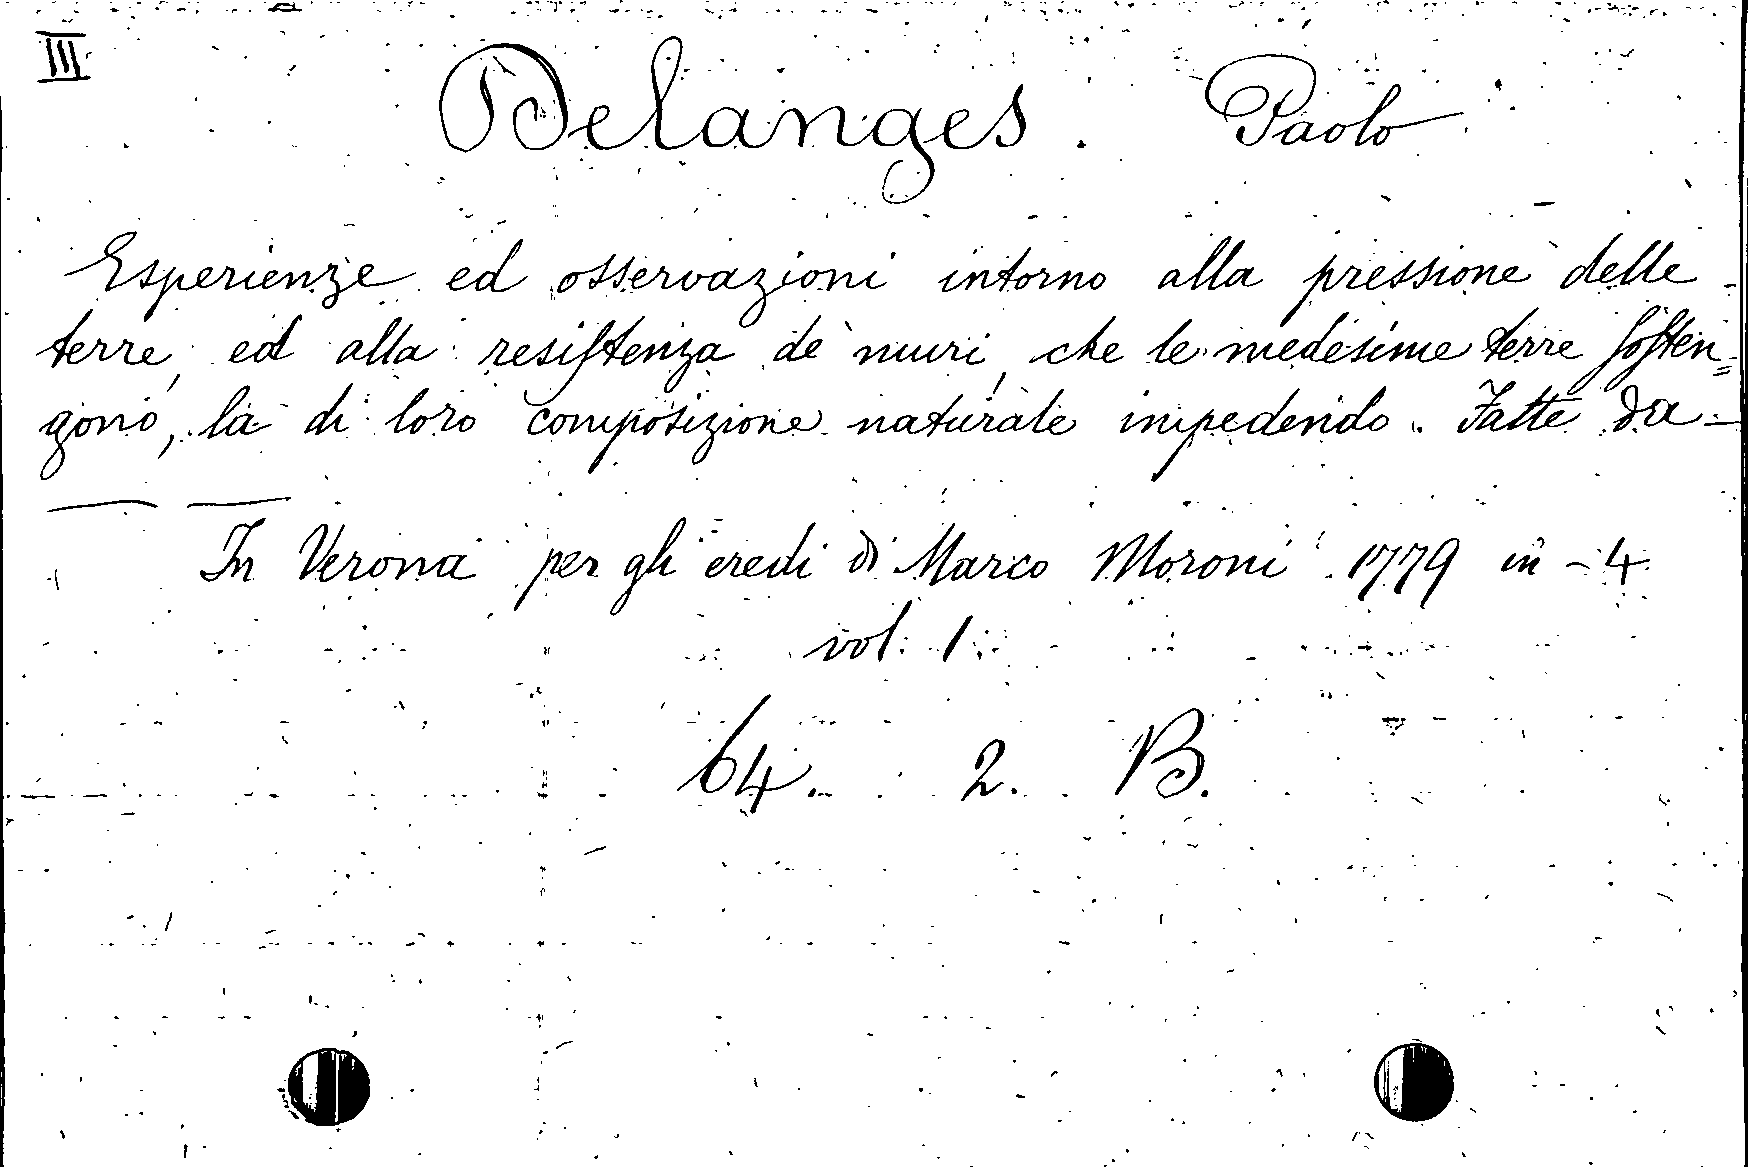 III
Delanges. Paolo
Esperienze ed osservazioni intorno alla pressione delle
terre, ed alla resiſtenza de' muri, che le medesime terre ſoſten=
gono, la di loro composizione naturale impedendo. Fatte da -
In Verona per gli eredi di Marco Moroni 1779 in - 4
vol. 1
64. 2. B.